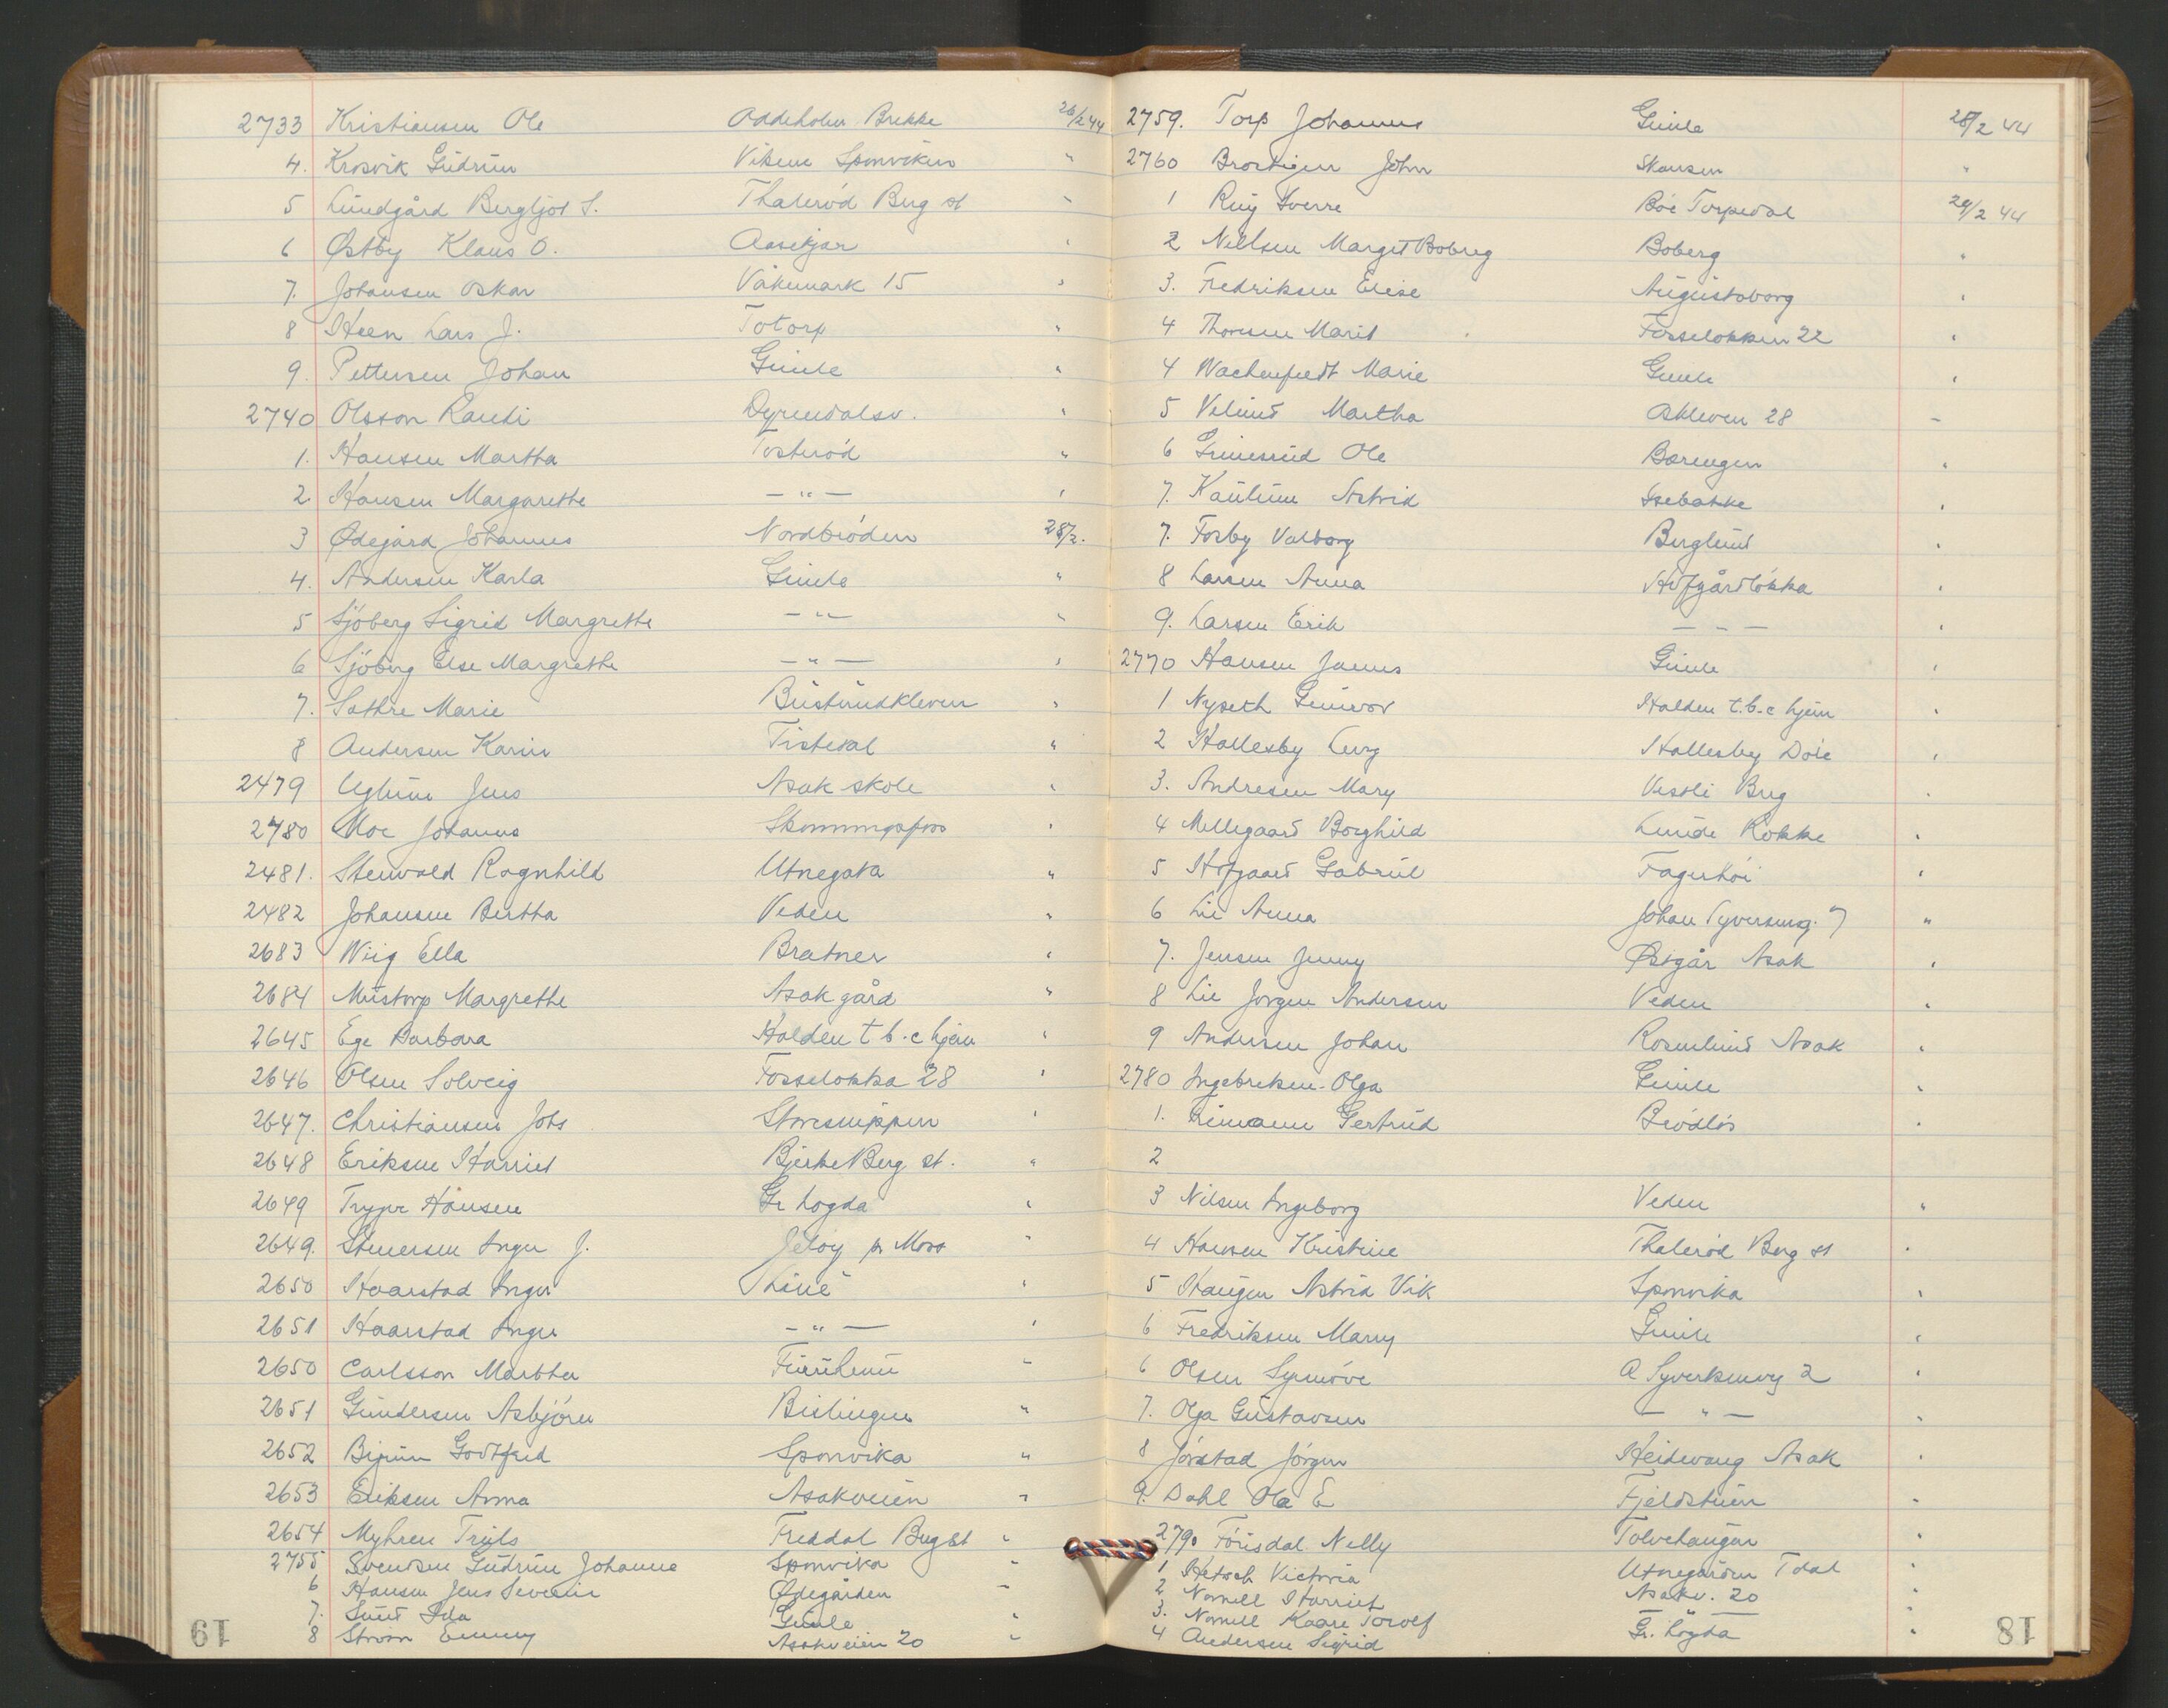 2733 Kristiansen Ole Oddeholm Brekke 26/2 44
4. Krosvik Gudrun Vikene Sponviken "
5 Lundgård Bergljot S. Thalerød Berg st "
6 Østby Klaus O. Aasekjær "
7. Johansen Oskar Våkemark 15 "
8 Heen Lars J. Totorp "
9. Pettersen Johan Gimle "
2740 Olsson Randi Dyrendalsv. "
1. Hansen Martha Tosterød "
2 Hansen Margarethe — " — "
3 Ødegård Johannes Nordbrøden 28/2.
4. Andersen Karla Gimle "
5 Sjöberg Sigrid Margrethe — " — "
6 Sjöberg Else Margrethe — " — "
7. Sathre Marie Busterudkleven "
8 Andersen Karin Tistedal "
2479 Uglum Jens Asak skole "
2780 Moe Johannes Skonningsfoss "
2481. Stenvold Ragnhild Utnegata "
2482 Johansen Bertha Veden "
2683 Wiig Ella Bratner "
2684 Mustorp Margrethe Asak gård "
2645 Ege Barbara Halden t.b.c hjem "
2646 Olsen Solveig Fosseløkka 28 "
2647. Christiansen Johs Storesnippen "
2648 Eriksen Harriet Bjerke Berg st. "
2649 Trygve Hansen Gr Løgda "
2649. Stenersen Inger J. Jeløy pr Moss "
2650 Haarstad Inger Live "
2651 Haarstad Inger — " — "
2650 Carlsson Marthea Furulund "
2651 Gundersen Asbjørn Bislingen "
2652 Bijnum Godtfred Sponvika "
2653 Eriksen Anna Asakveien "
2654 Myhren Truls Freddal Berg st "
2755 Svendsen Gudrun Johanne Sponvika "
6 Hansen Jens Severin Ødegården "
7. Lund Ida Gimle "
8 Strøm Emmy Asakveien 20 "
19
2759. Torp Johannes Gimle 28/2 44
2760 Brostigen John Skansen "
1 Ruig Sverre Bøe Torpedal 29/2 44
2 Nilsen Margit Boberg Boberg "
3. Fredriksen Elise Augustaborg "
4 Thoresen Marit Fosseløkken 22 "
4 Wachenfeldt Marie Gimle "
5 Velund Martha Oskleven 28 "
6 Grimsrud Ole Børengen "
7. Kaulum Astrid Isebakke "
7. Fosby Valborg Berglund "
8 Larsen Anna Hofgårdløkka "
9. Larsen Erik — " — "
2770 Hansen James Gimle "
1 Nyseth Gunvor Halden t.b.c hjem "
2 Hallesby Hallesby "
3. Andresen Mary Vestli Berg "
4 Mellegaard Borghild Lunde Rokke "
5 Hofgaard Gabriel Fagerhöi "
6 Lie Anna Johan Syversensg. 7 "
7. Jensen Jenny Østgår Asak "
8 Lie Jørgen Andersen Veden "
9 Andersen Johan Rosenlund Asak "
2780 Ingebretsen Olga Gimle "
1. Reimann Gertrud Brødløs "
2
3 Nilsen Ingeborg Veden "
4 Hansen Kristine Thalerød Berg st "
5 Haugen Astrid Vik Sponvika "
6 Fredriksen Marry Gimle "
6 Olsen Synnøve A Syverksenvg 2 "
7. Olga Gustavsen — " — "
8 Jørstad Jørgen Heidevang Asak "
9. Dahl Ola E Fjeldstuen "
2790 Förisdal Nelly Tolvehaugan "
1 Ketsch Victoria Utnegården Tdal "
2 Normell Harriet Asakv. 20 "
3. Normell Kaare Torolf — " — "
4 Andersen Sigrid Gr. Løgda "
18